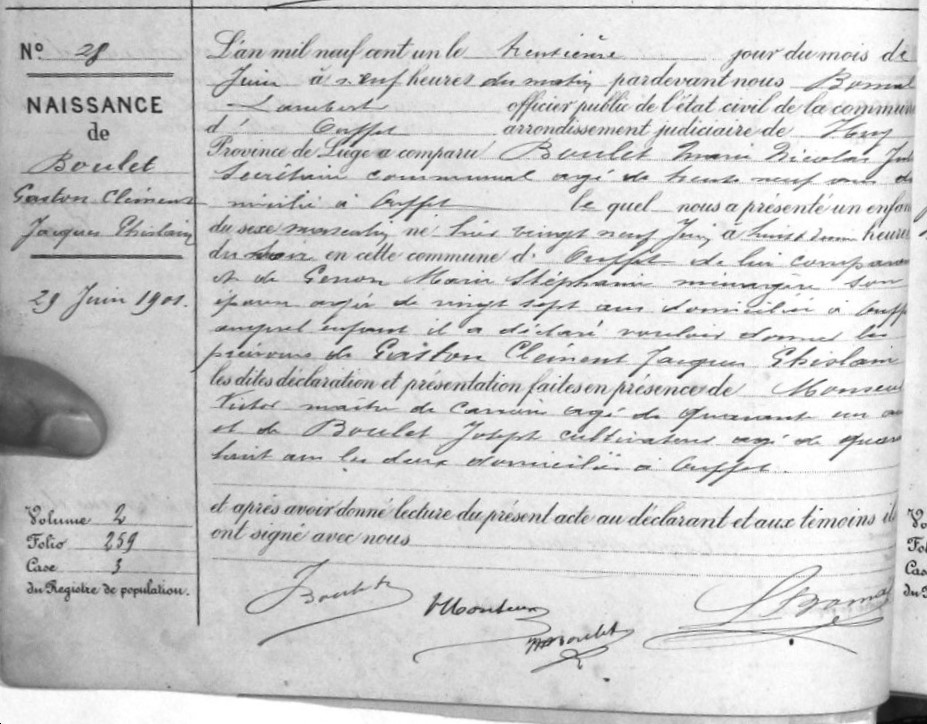 N° 28
NAISSANCE
de
Boulet
Gaston Clément
Jacques Ghislain
29 Juin 1901.
Volume 2
Folio 259
Case 3
du Registre de population.
L'an mil neuf cent un le trentième jour du mois de
Juin à neuf heures du matin pardevant nous Bomal
Lambert officier public de l'état civil de la commune
d' Ouffet arrondissement judiciaire de Huy
Province de Liège a comparu Boulet Marie Nicolas
Secrétaire communal agé de trente neuf ans do
micilié à Ouffet le quel nous a présenté un enfan
du sexe masculin né hier vingt neuf Juin à heures
du soir en cette commune d' Ouffet de lui comparant
et de Genon Marie Stéphanie ménagère son
épouse agée de vingt sept ans domiciliée à Ouff
auquel enfant il a déclaré vouloir donner les
prénoms de Gaston Clément Jacques Ghislain
les dites déclaration et présentation faites en présence de
Victor maître de carrière agé de quarante un a
et de Boulet Joseph cultivateur agé de quara
huit ans les deux domiciliés à Ouffet.
et après avoir donné lecture du présent acte au déclarant et aux témoins il
ont signé avec nous
Boulet
VMonseur
Boulet
LBomal
Vo
Fol
Cas
du